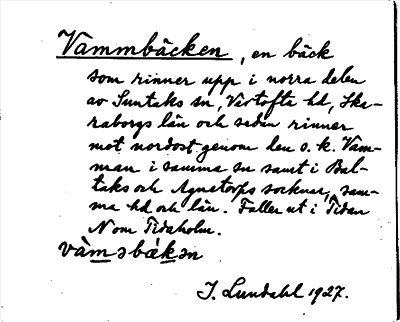 Vammbäcken, en bäck
som rinner upp i norra delen
av Suntaks sn, Vartofta hd, Ska-
raborgs län och sedan rinner
mot nordost genom den s. k. Vam-
man i samma sn samt i Bal-
taks och Agnetorps socknar, sam-
ma hd och län. Faller ut i Tidan
N om Tidaholm.
vàməbákən
J. Lundahl 1927.